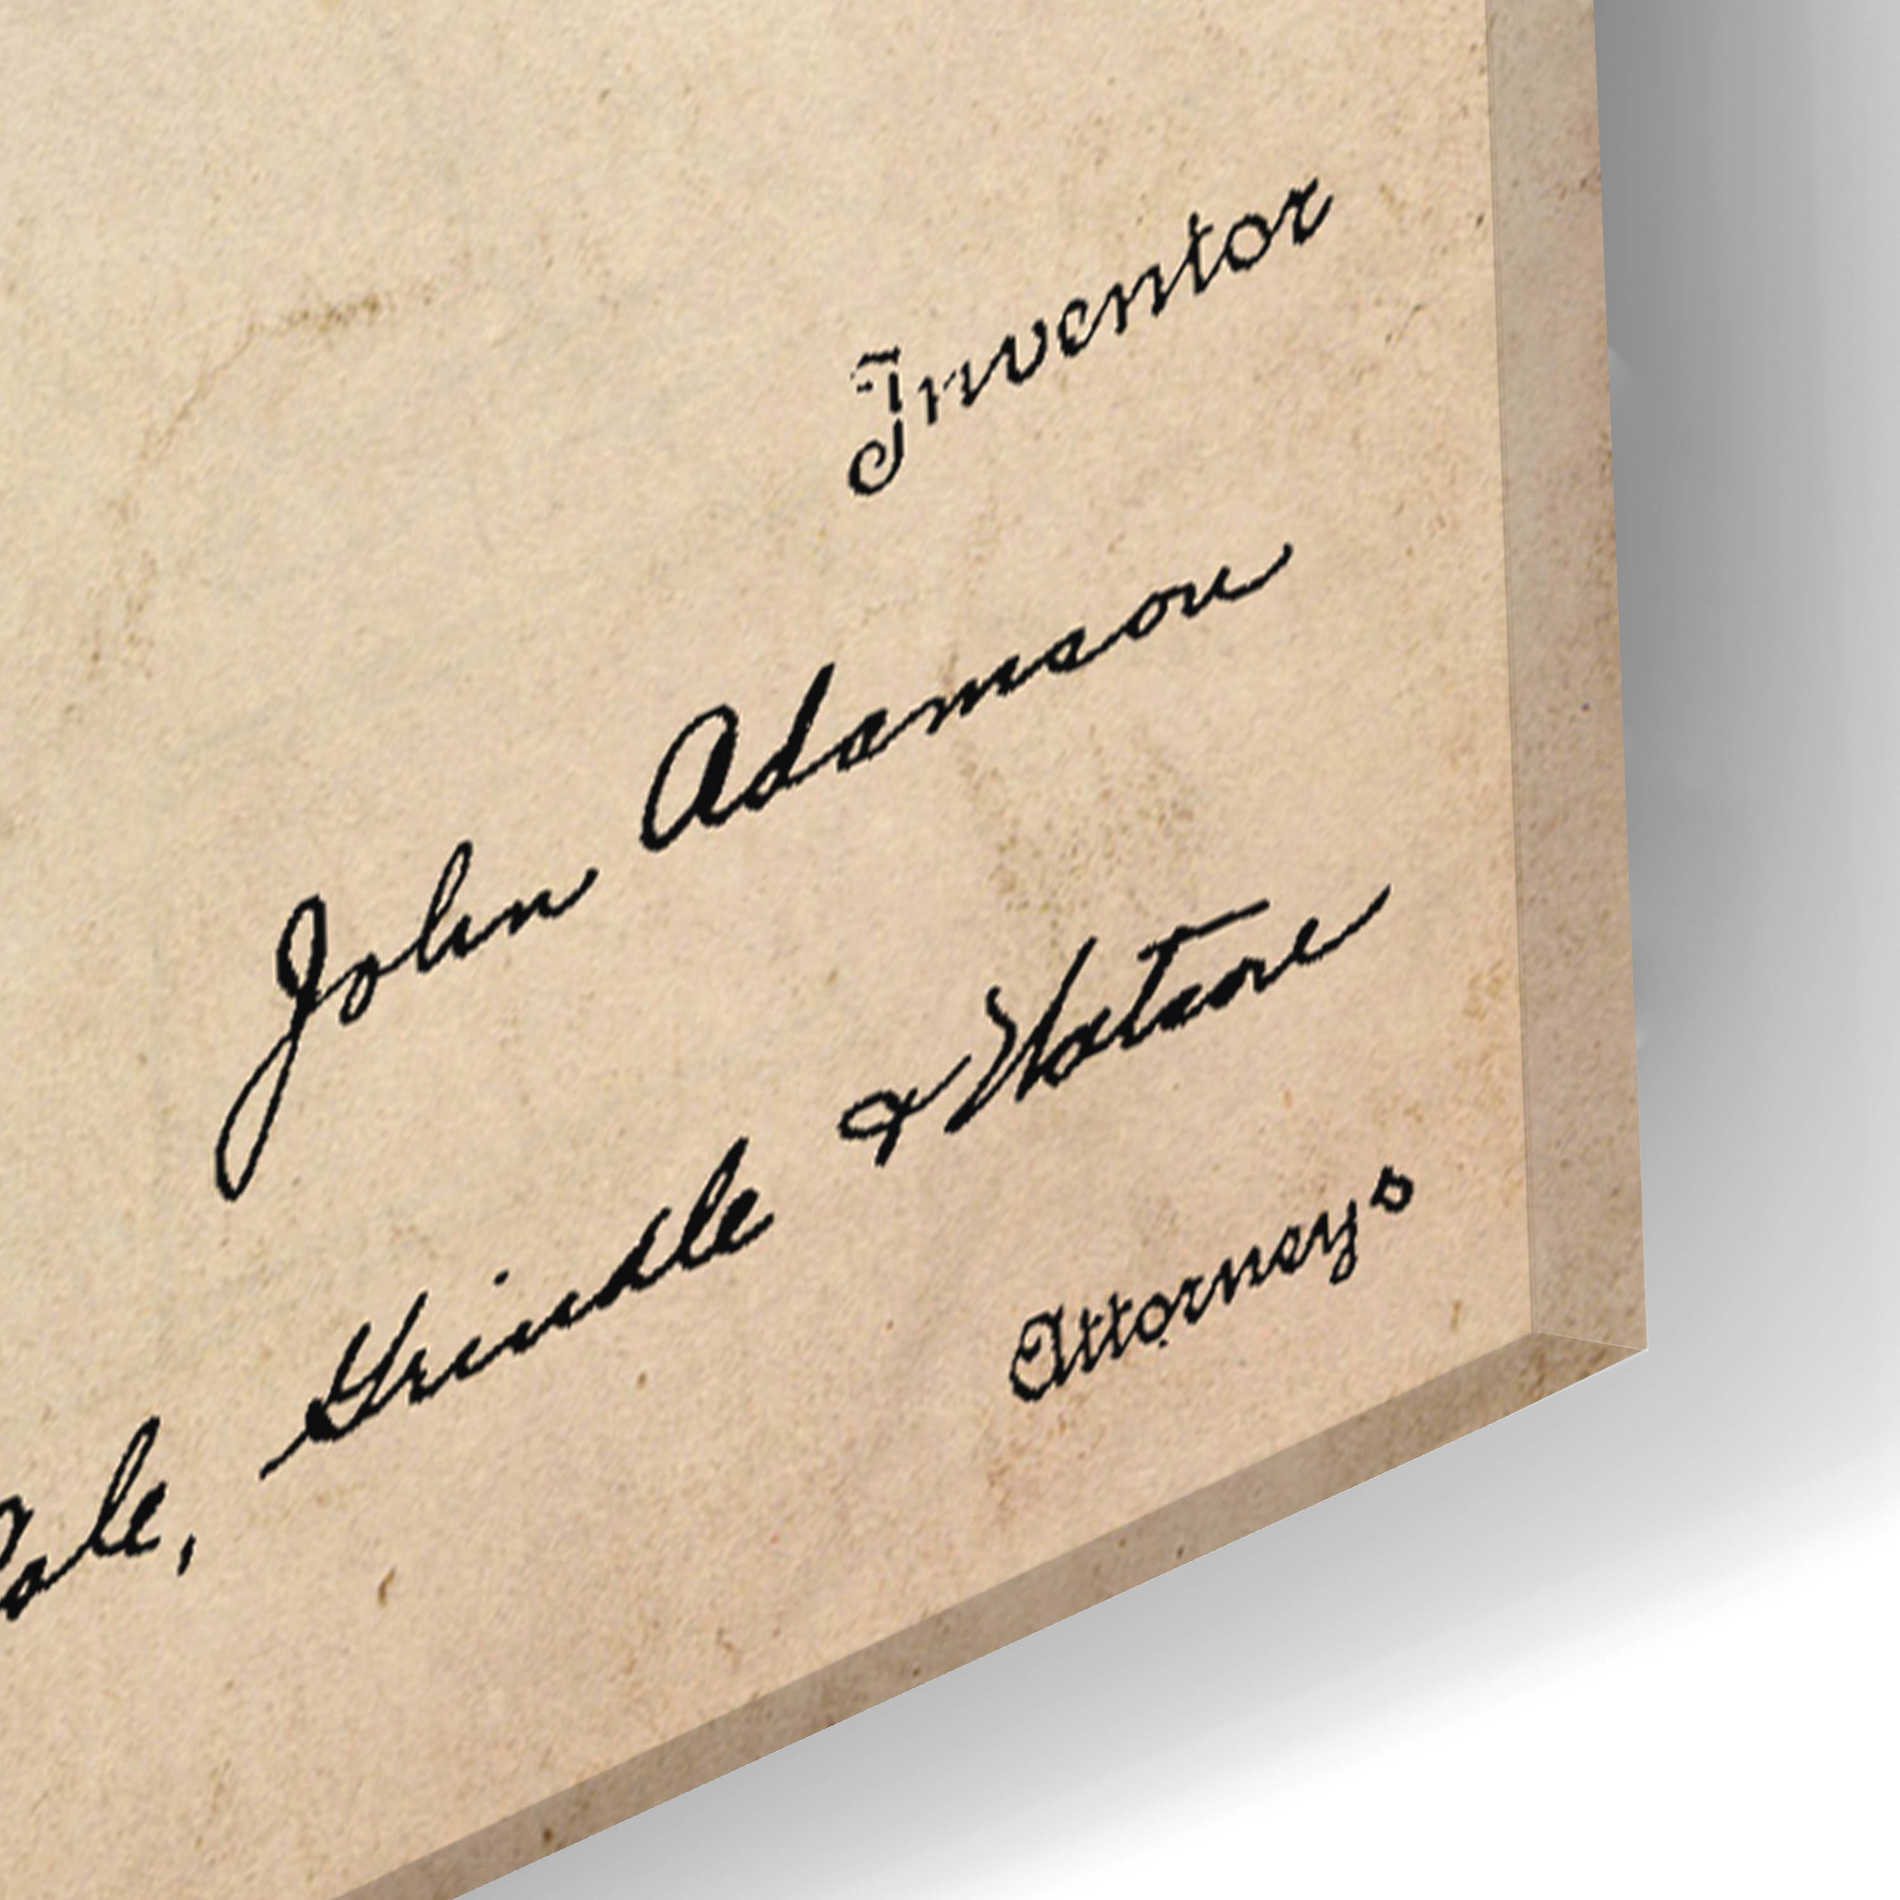 Inventor
John Adamson
Grindle & Watson
Attorneys